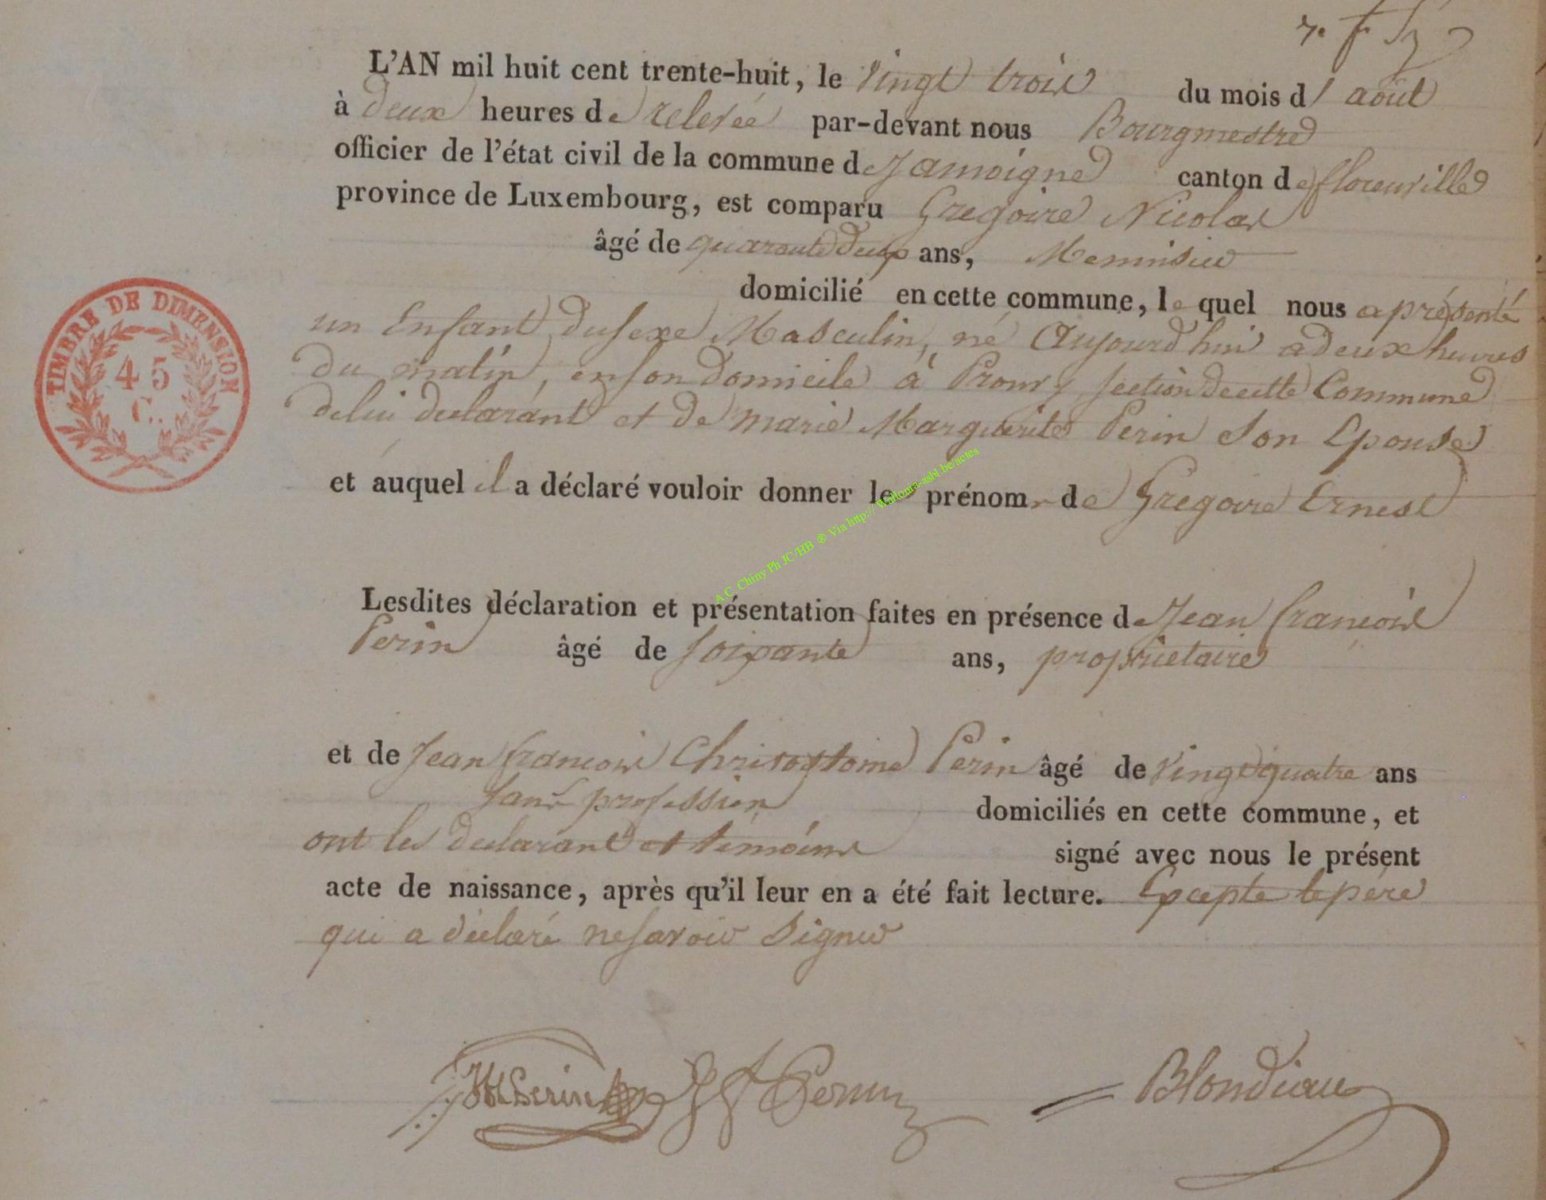 L'AN mil huit cent trente-huit, le vingt trois du mois d'août
à deux heures de relevée par-devant nous Bourgmestre
officier de l'état civil de la commune de Jamoigne canton de florenville
province de Luxembourg, est comparu Gregoire Nicolas
âgé de quarante deux ans, Menuisier
domicilié en cette commune, le quel nous a présenté
un Enfant du sexe Masculin, né aujourd'hui a deux heures
Du matin, en son Domicile à Prouvy section de cette Commune
de lui declarant et de marie Marguerite Perin son Epouse
et auquel il a déclaré vouloir donner les prénoms de Gregoire Ernest
Lesdites déclaration et présentation faites en présence de Jean françois
Perin âgé de soixante ans, propriétaire
et de Jean françois Christostome Perin âgé de vingt quatre ans
sans profession domiciliés en cette commune, et
ont les declarant et témoins signé avec nous le présent
acte de naissance, après qu'il leur en a été fait lecture. Excepte le père
qui a déclaré ne savoir signer
Perin JF Perin Blondiau
TIMBRE DE DIMENSION
45
C.
A.C. Chiny Ph JC/HB ® Via http://